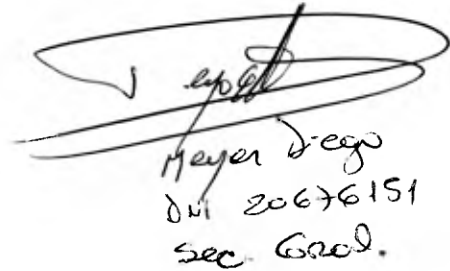 Meyer Diego
DNI 20676151
Sec. Gral.